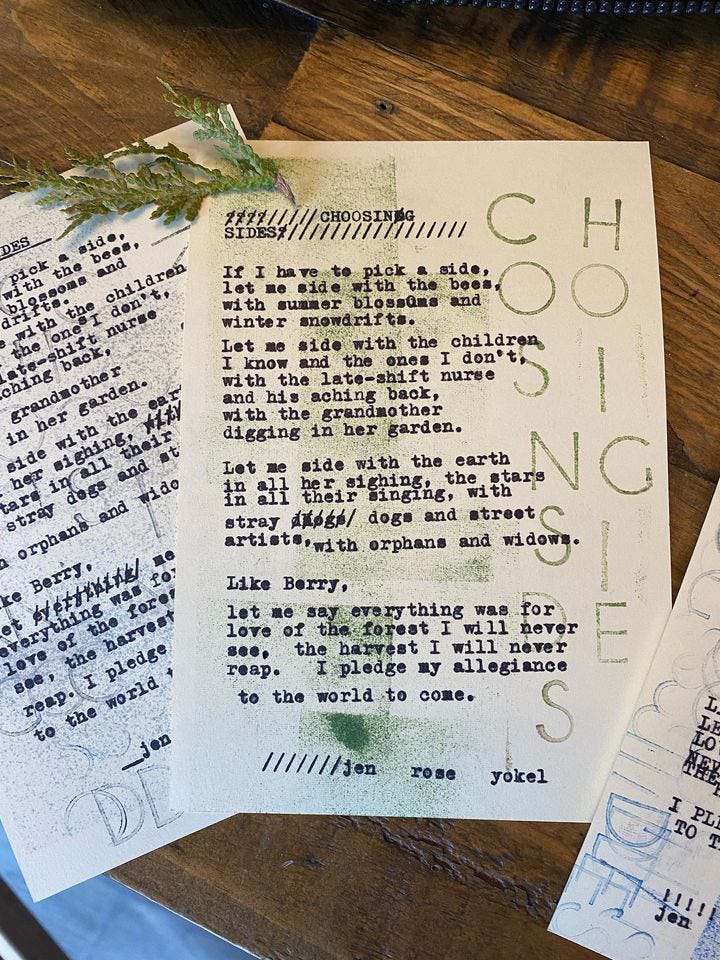 ????/////CHOOSING
SIDES?/////////////////
If I have to pick a side,
let me side with the bees,
with summer blossoms and
winter snowdrifts.
Let me side with the children
I know and the ones I don't,
with the late-shift nurse
and his aching back,
with the grandmother
digging in her garden.
Let me side with the earth
in all her sighing, the stars
in all their singing, with
stray dogs and street
artists, with orphans and widows.
Like Berry,
let me say everything was for
love of the forest I will never
see, the harvest I will never
reap. I pledge my allegiance
to the world to come.
////////jen rose yokel
C H
O O
S I
N G
S I
D E
S
DES
pick a side,
with the bees,
blossoms and
drifts.
with the children
the one I don't,
late-shift nurse
ching back,
grandmother
in her garden.
side with the ear
her sighing,
tars in all their
stray dogs and st
orphans and wido
ke Berry,
et everything me
everything was for
love of the fores
see, the harvest
reap. I pledge
to the world t
jen
DE
L
LE
LO
NEV
THE
I PL
TO T
!!!!
jen